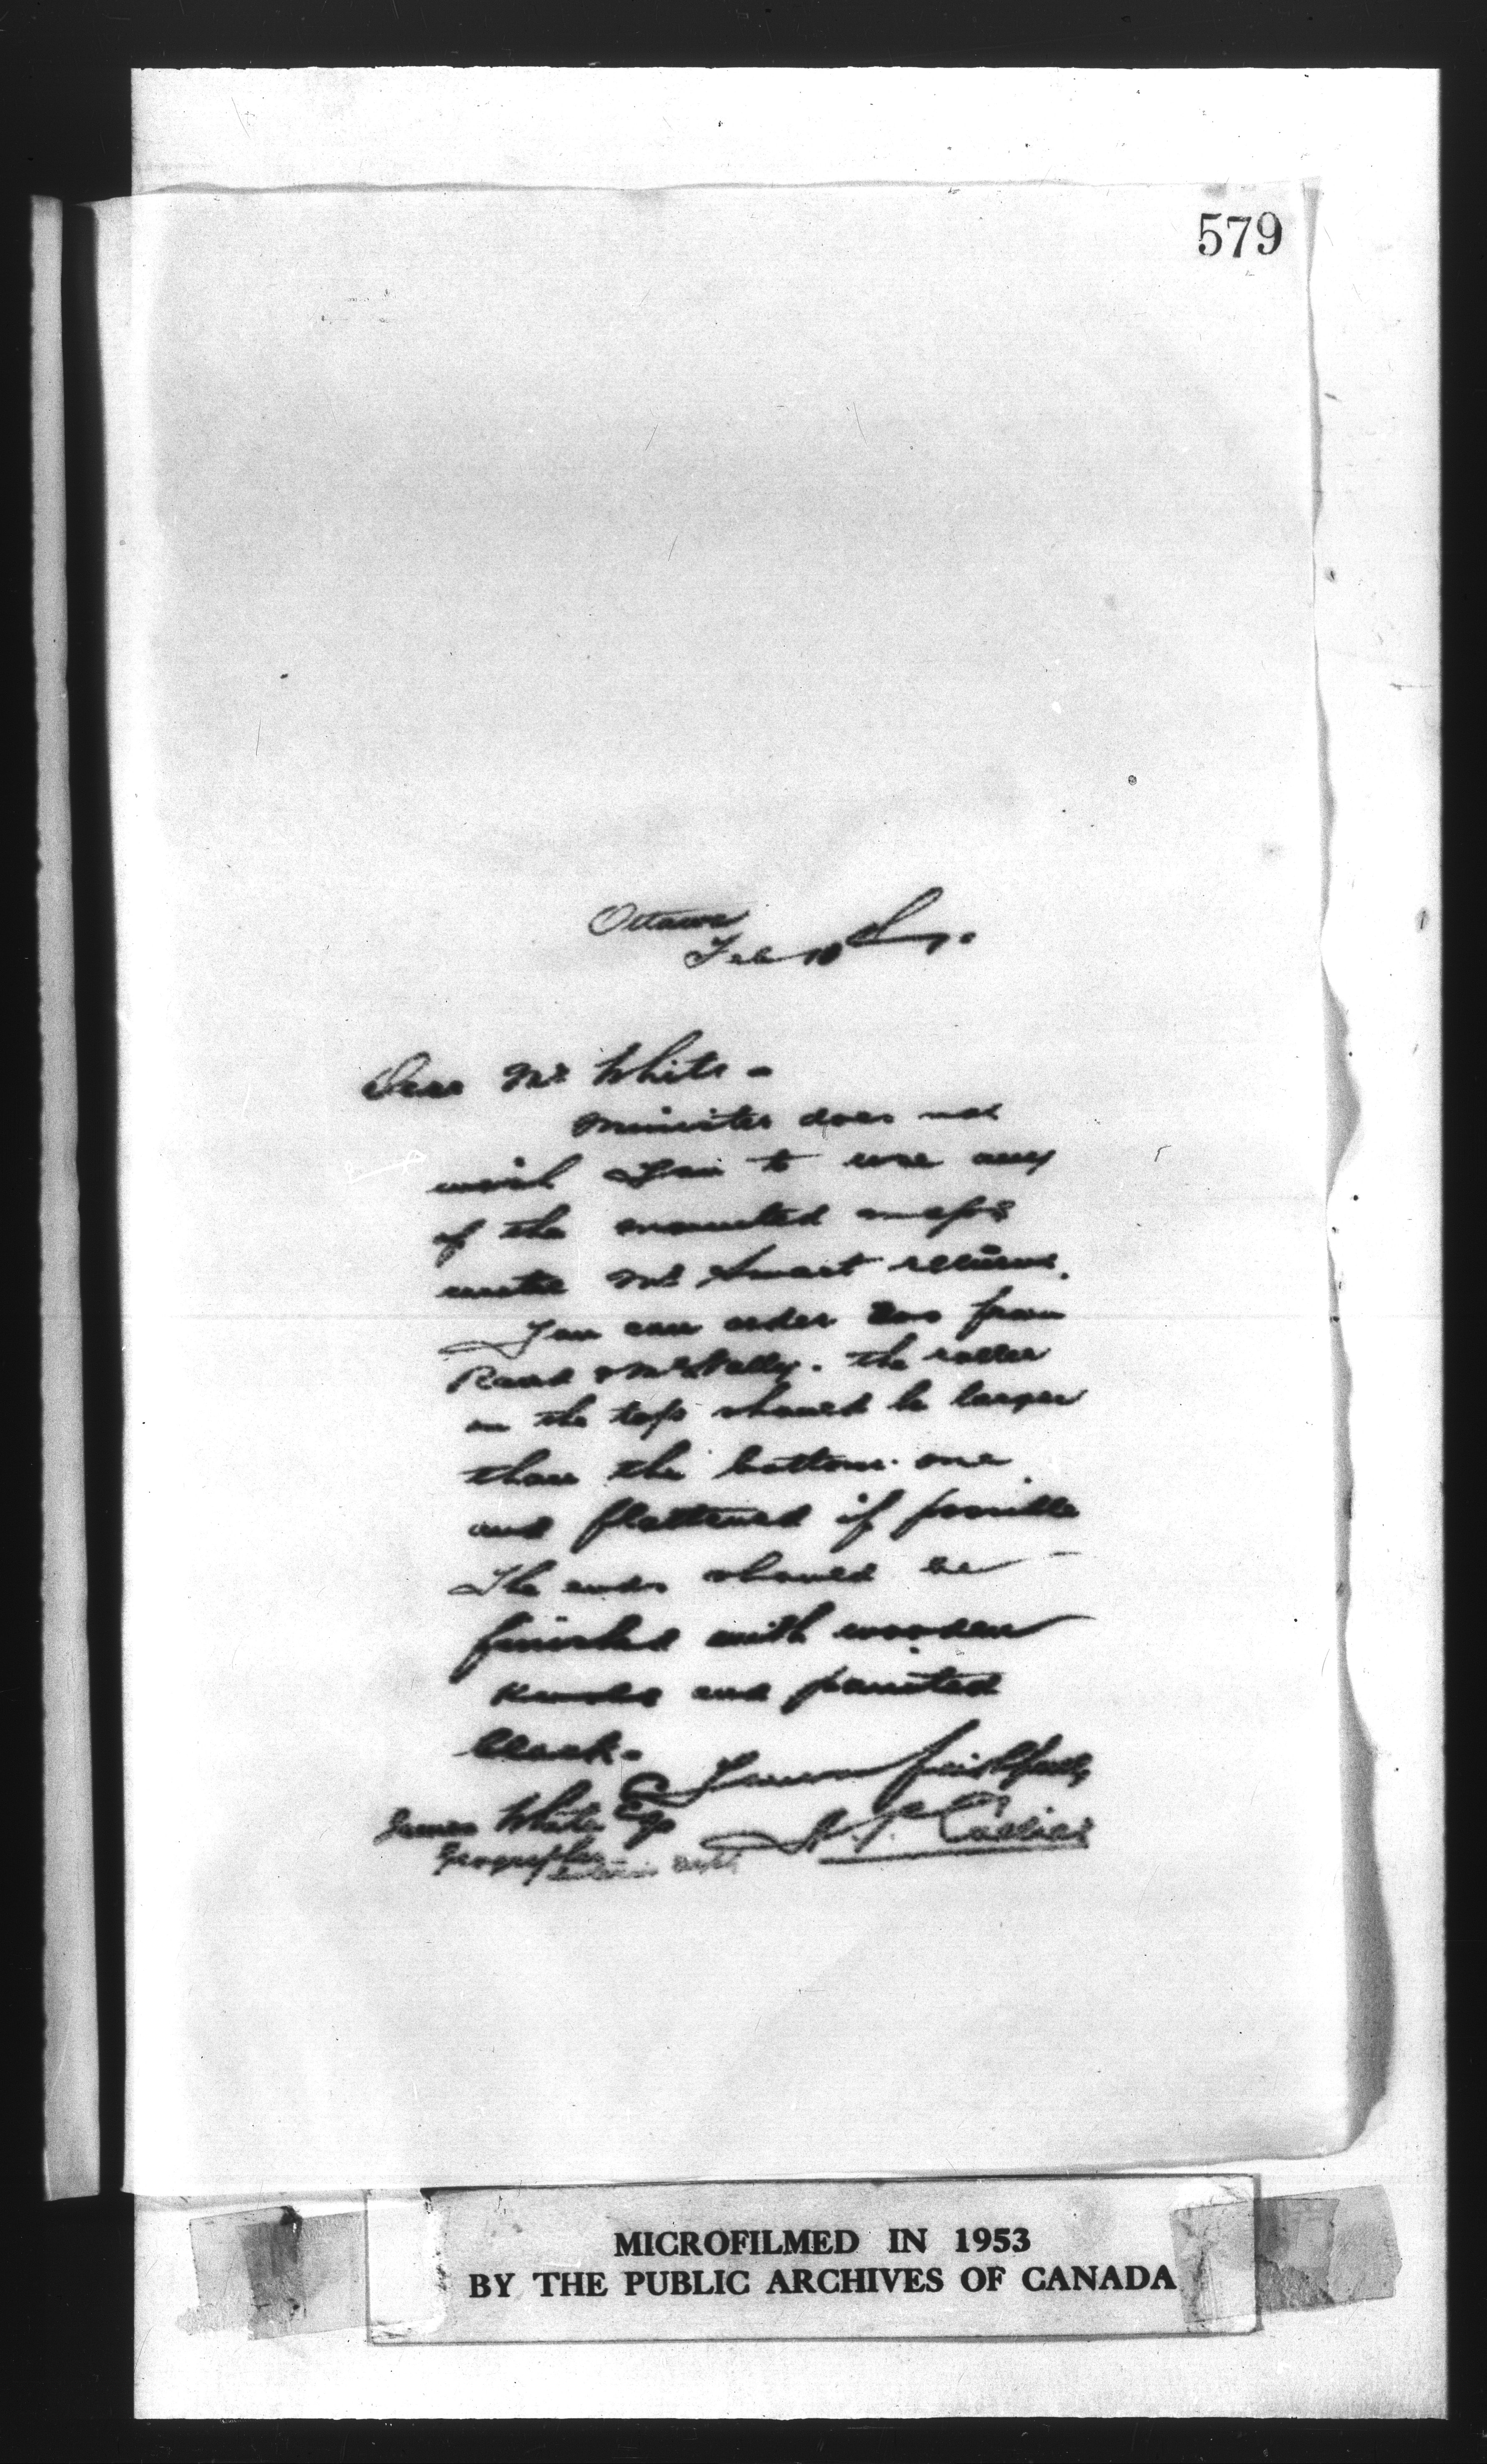 579
Ottawa
Feb 10
Dear Mr White -
Minister does not
wish you to use any
of the mounted maps
until Mr Smart returns.
You can order from
Rand & McNally. The roller
on the top should be larger
than the bottom one
and flattened if possible
The ends should be
finished with wooden
knobs and painted
black.
Yours faithfully
A. P. Collier
James White Esq
Geographer
Interior Dept
MICROFILMED IN 1953
BY THE PUBLIC ARCHIVES OF CANADA